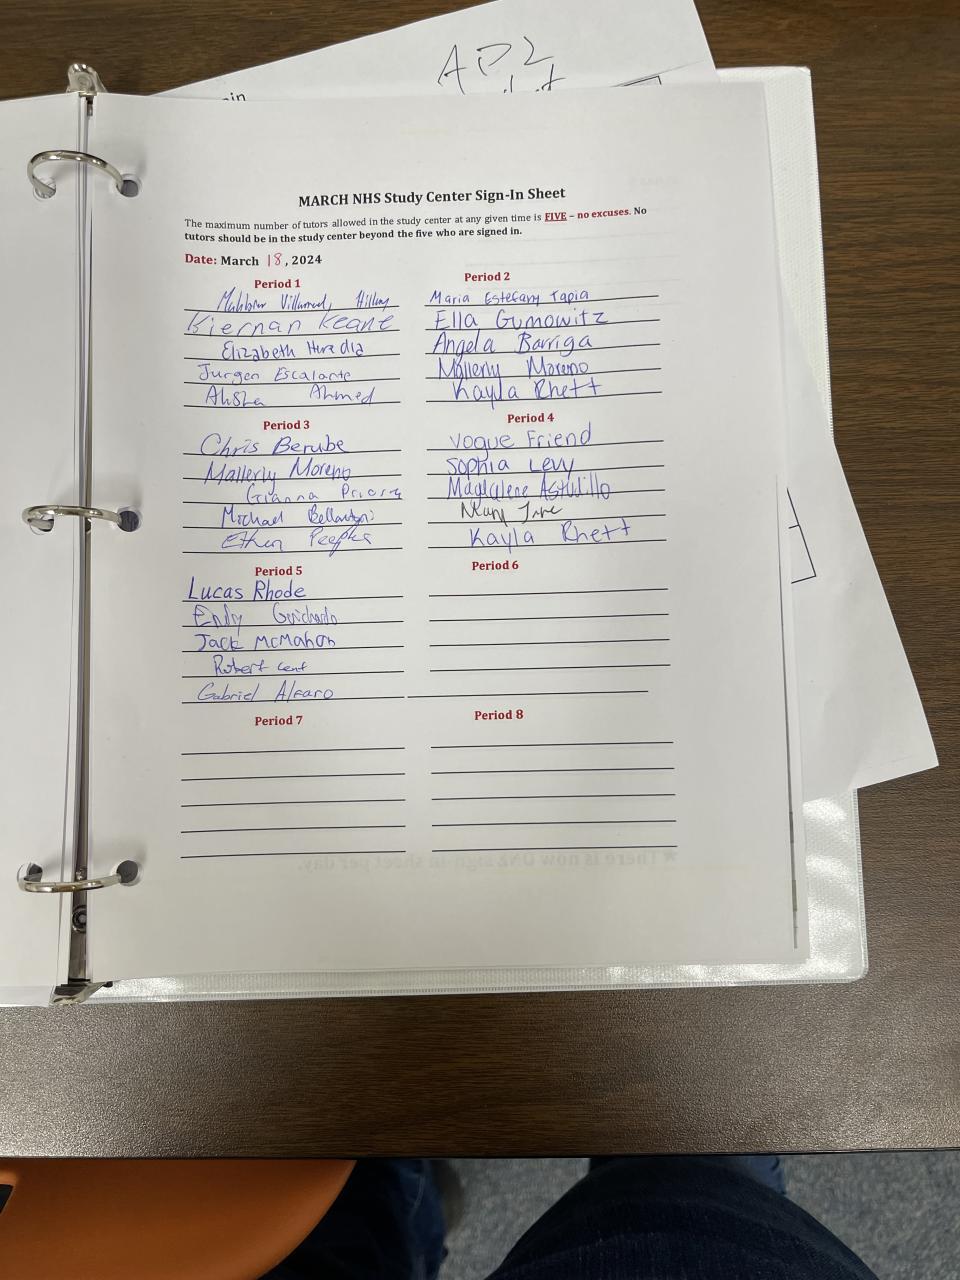 AP2
MARCH NHS Study Center Sign-In Sheet
The maximum number of tutors allowed in the study center at any given time is FIVE – no excuses. No
tutors should be in the study center beyond the five who are signed in.
Date: March 18, 2024
Period 1
Villarreal, Hillary
Kiernan Keane
Elizabeth Heredia
Jurgen Escalante
Ahmed
Period 2
Maria Estefany Tapia
Ella Gumowitz
Angela Barriga
Mallerly Moreno
Kayla Rhett
Period 3
Chris Berube
Mallerly Moreno
Gianna Priory
Michael Bellantoni
Ethan Peeples
Period 4
Vogue Friend
Sophia Levy
Magdalene Astudillo
Kayla Rhett
Period 5
Lucas Rhode
Endy Guichardo
Jack McMahon
Robert
Gabriel Alfaro
Period 6
Period 7
Period 8
★ There is now ONE sign-in sheet per day.